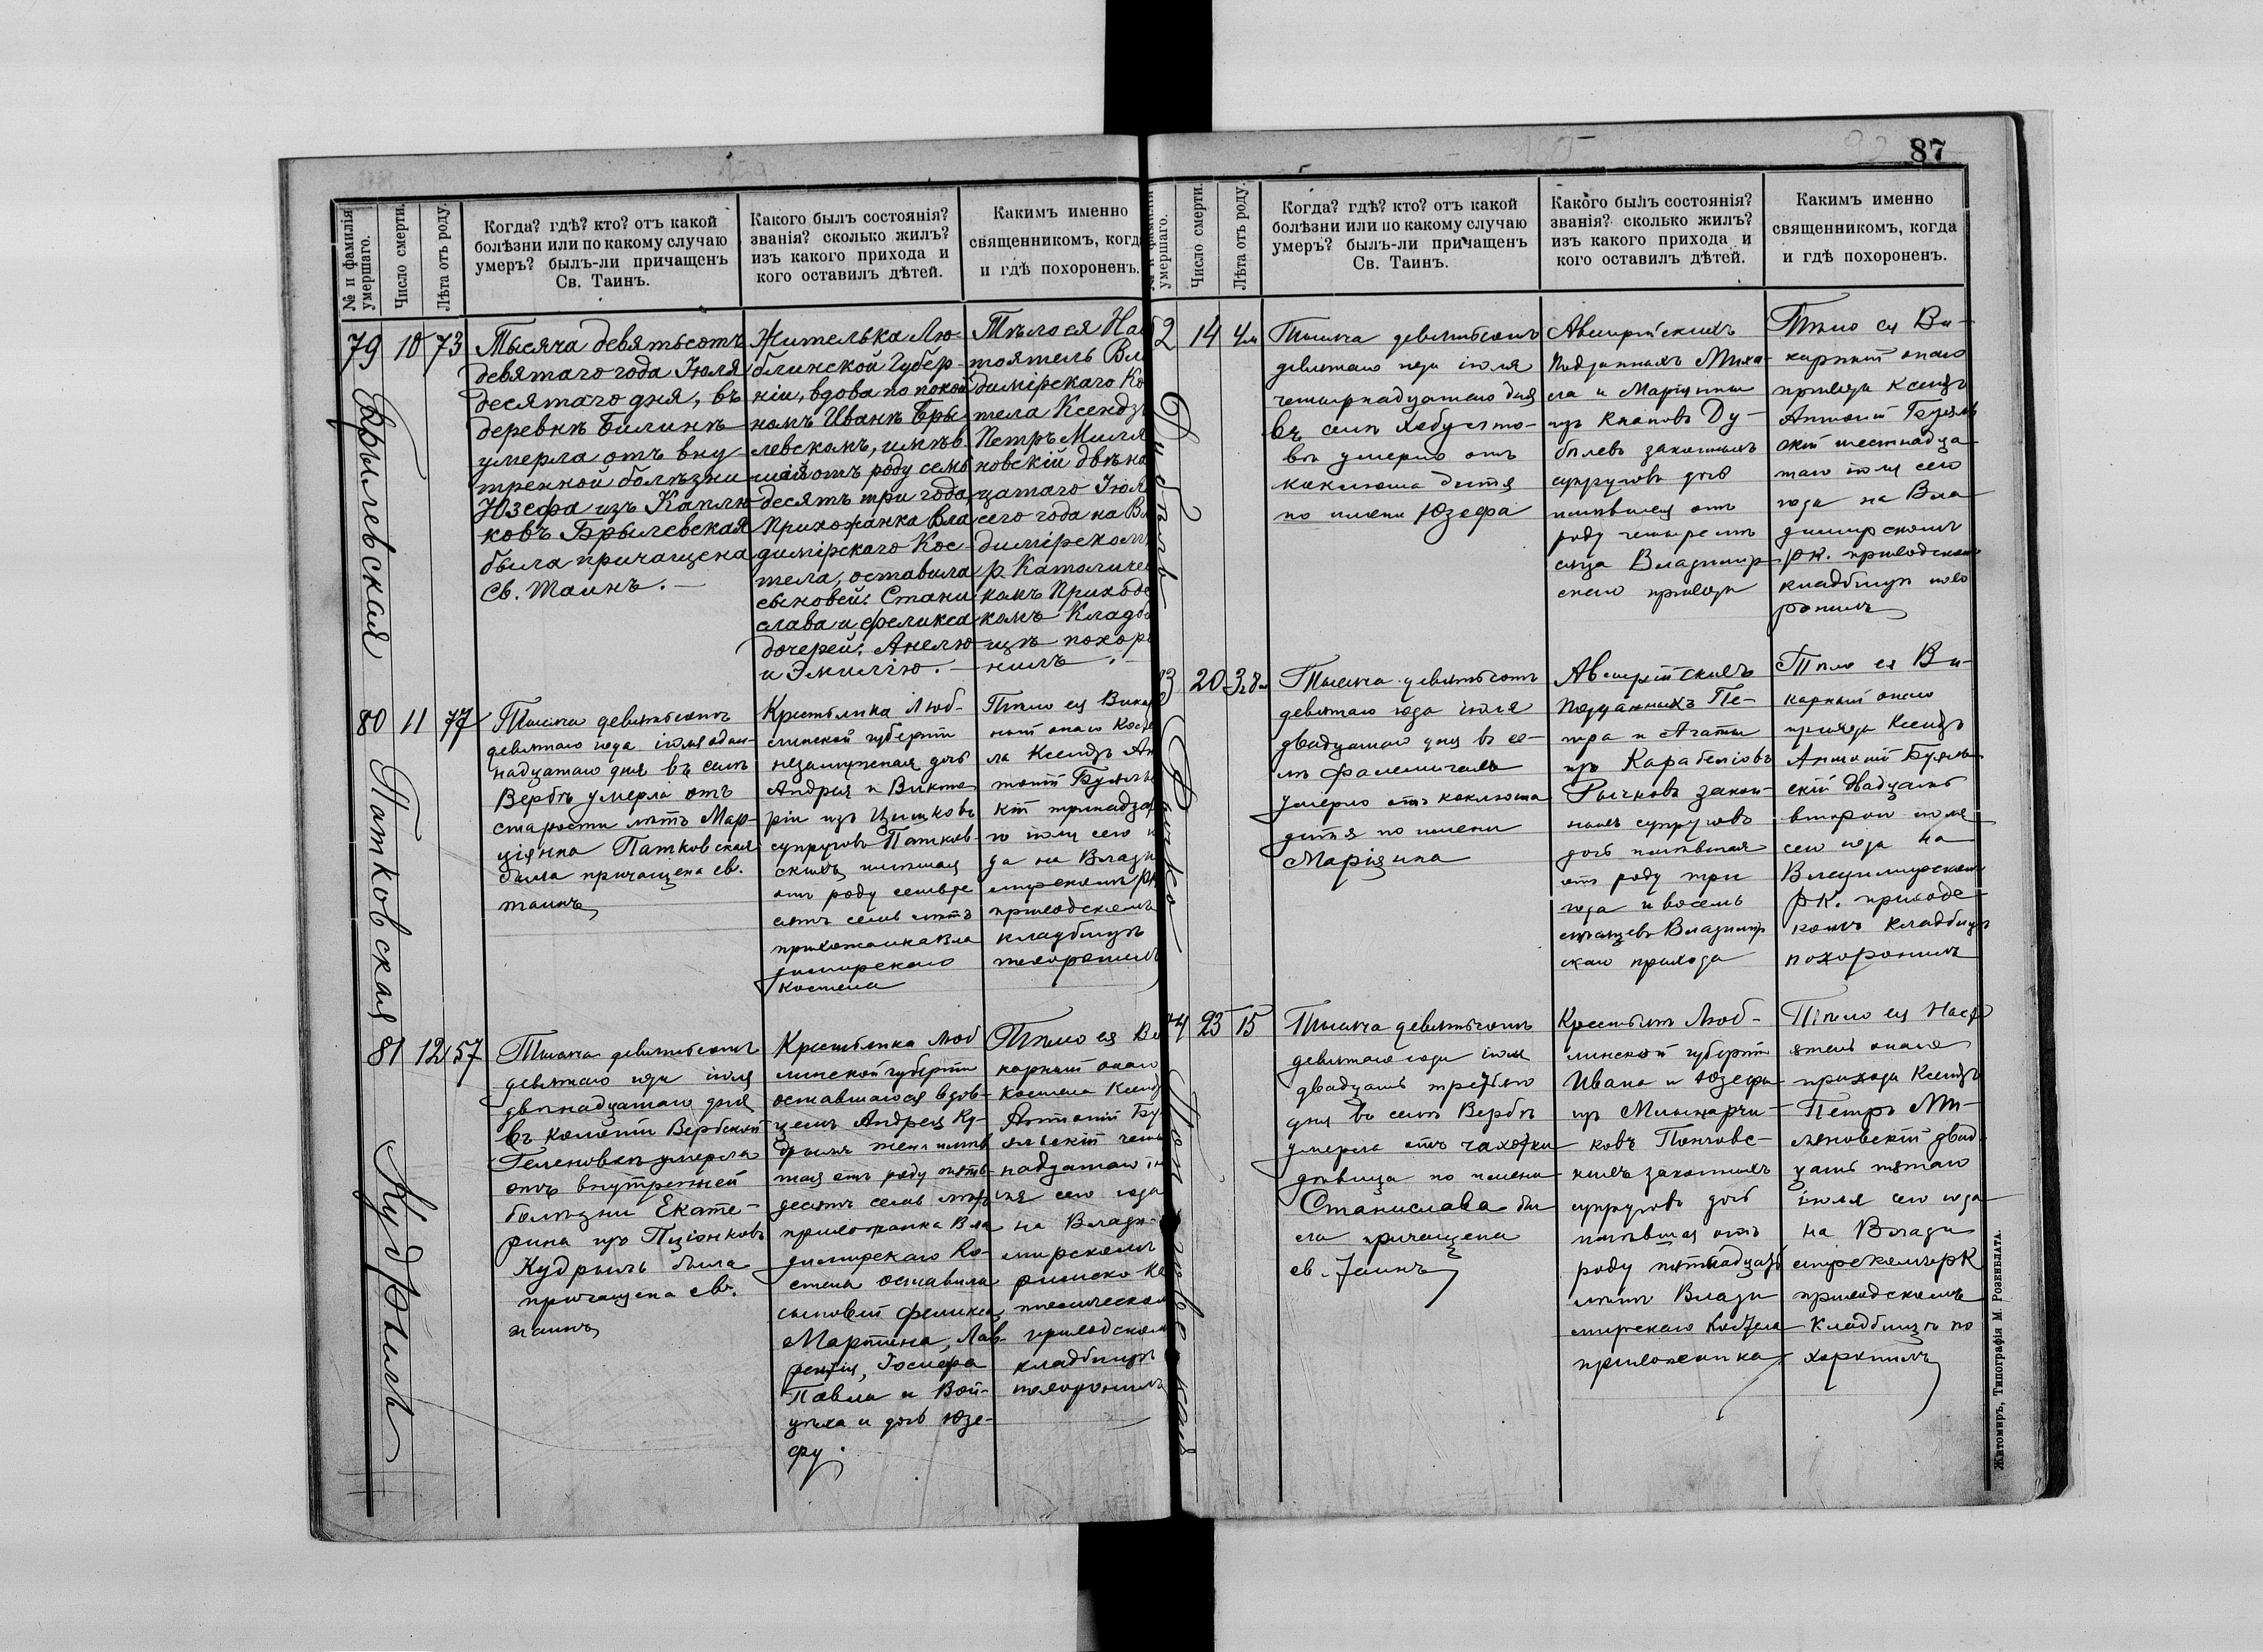 87
№ и фамилія умершаго.
Число смерти.
Лѣта отъ роду.
Когда? гдѣ? кто? отъ какой
болѣзни или по какому случаю
умеръ? былъ-ли причащенъ
Св. Таинъ.
Какого былъ состоянія?
званія? сколько жилъ?
изъ какого прихода и
кого оставилъ дѣтей.
Какимъ именно
священникомъ, когд
и гдѣ похороненъ.
79
Брылевская
10
73
Тысяча девятьсотъ
девятаго года Іюля
десятаго дня, въ
деревнѣ Билинѣ
умерла отъ вну-
тренной болѣзни
Юзефа изъ Каплю
ковъ Брылевская
была причащена
Св. Таинъ. —
Жителька Лю-
блинской Губер-
ніи, вдова по покой
номъ Иванѣ Бры
левскомъ, имѣв
шій отъ роду семь
десятъ три года
Прихожанка Вла
димірскаго Кос-
тела, оставила
сыновей: Стани
слава и Феликса
дочерей: Анелю
и Эмилію. —
Тѣло ея Нас
тоятель Вла
димірскаго Ко
тела Ксендзъ
Петръ Миля
новскій двѣна
цатаго Іюл
сего года на Вл
димірском
р. Католиче
комъ Приходс
комъ Кладб
ищѣ похоро
нилъ. —
80
Патковская
11
77
Тысяча девятьсотъ
девятаго года іюля один-
надцатаго дня въ селѣ
Вербѣ умерла отъ
старости лѣтъ Мар-
ціянна Патковская
была причащена св.
таинъ
Крестьянка Люб-
линской губерніи
незамужная дочь
Андрея и Викто
ріи изъ Цишковъ
супруговъ Патков-
скихъ имѣвшая
отъ роду семьде
сятъ семь лѣтъ
прихожанка Вла
димирскаго
костела
Тѣло ея Викар
ный онаго Косте
ла Ксендзъ Ан
тоній
кій тринадца
го іюля сего
да на Влади
мирскомъ рк
приходскомъ
кладбищѣ
похоронилъ
81
Кудрыль
12
57
Тысяча девятьсотъ
девятаго года іюля
двѣнадцатаго дня
въ колоніи Вербской
Геленовкѣ умерла
отъ внутренней
болѣзни Екате-
рина изъ Пціонковъ
Кудрыль была
причащена св.
таинъ
Крестьянка Люб
линской губерніи
оставшагося вдов-
цемъ Андрея Ку-
дрыля жена имѣв
шая отъ роду пять-
десятъ семь лѣтъ
прихожанка Вла
димирскаго Ко-
стела оставила
сыновей Феликса
Мартина, Лав-
рентія, Іосифа
Павла и Вой-
цѣха и дочь Юзе-
фу.
Тѣло ея Ви
карный онаго
костела Ксендз
Антоній
четы
надцатаго і
ля сего года
на Влади-
мирскомъ
римско Ка
толическом
приходском
кладбищѣ
похоронилъ
№ и фамилія умершаго.
Число смерти.
Лѣта отъ роду.
Когда? гдѣ? кто? отъ какой
болѣзни или по какому случаю
умеръ? былъ-ли причащенъ
Св. Таинъ.
Какого былъ состоянія?
званія? сколько жилъ?
изъ какого прихода и
кого оставилъ дѣтей.
Какимъ именно
священникомъ, когда
и гдѣ похороненъ.
2
14
4м
Тысяча девятьсотъ
девятаго года іюля
четырнадцатаго дня
въ селѣ Хобулто-
вѣ умерло отъ
коклюша дитя
по имени Юзефа
Австрійскихъ
подданныхъ Миха-
ла и Маріянны
изъ Кнаповъ Ду-
былевъ законныхъ
супруговъ дочь
имѣвшая отъ
роду четыре мѣ
сяца Владимир-
скаго прихода
Тѣло ея Ви-
карный онаго
прихода Ксендзъ
Антоній
скій шестнадца
таго іюля сего
года на Вла
димирскомъ
рк. приходскомъ
кладбищѣ похо
ронилъ
3
20
3г 8м
Тысяча девятьсотъ
девятаго года іюля
двадцатаго дня въ се-
лѣ Фалемичахъ
умерло отъ коклюша
дитя по имени
Маріянна
Австрійскихъ
Подданныхъ Пе-
тра и Агаты
изъ
закон-
ныхъ супруговъ
дочь имѣвшая
отъ роду три
года и восемь
мѣсяцевъ Владимир
скаго прихода
Тѣло ея Ви-
карный онаго
прихода Ксендзъ
Антоній
скій двадцать
второго іюля
сего года на
Владимирскомъ
рк. приходс-
комъ кладбищѣ
похоронилъ
4
23
15
Тысяча девятьсотъ
девятаго года іюля
двадцать третьяго
дня въ селѣ Вербѣ
умерла отъ чахотки
дѣвица по имени
Станислава бы
ла причащена
св. Таинъ
Крестьянъ Люб-
линской губерніи
Ивана и Юзефы
изъ Млынарчи-
ковъ
кихъ законныхъ
супруговъ дочь
имѣвшая отъ
роду пятнадцать
лѣтъ Влади
мирскаго Костела
прихожанка
Тѣло ея Насто
ятель онаго
прихода Ксендзъ
Петръ Ми-
ляновскій двад
цать пятаго
іюля сего года
на Влади
мирскомъ рк
приходскомъ
кладбищѣ по
хоронилъ
Житомиръ, Типографія М. Розенблата.